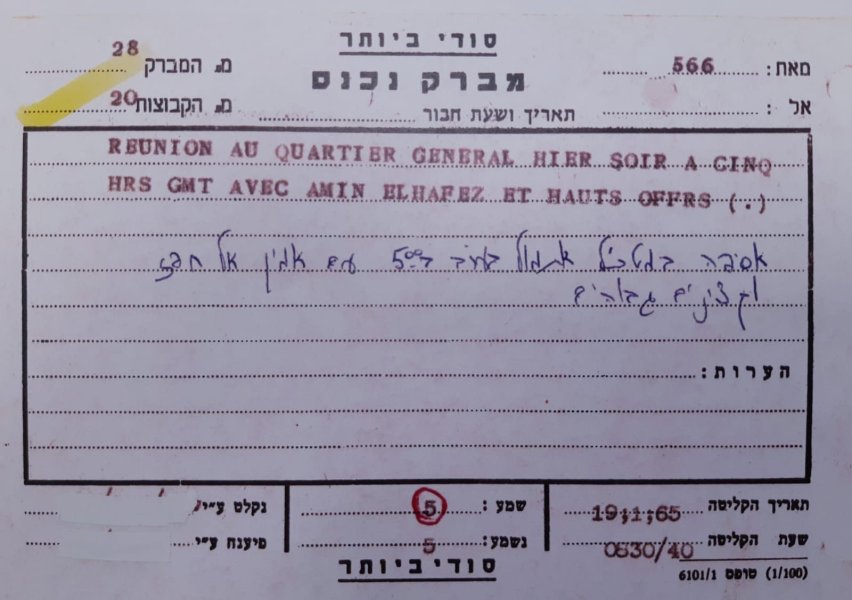 סודי ביותר
מברק נכנס
מאת: 566
מס המברק 28
אל :
מס הקבוצות 20
תאריך ושעת חבור
REUNION AU QUARTIER GENERAL HIER SOIR A CINQ
HRS GMT AVEC AMIN ELHAFEZ ET HAUTS OFFRS (.)
אסיפה במטכ״ל אתמול בערב ב-5⁰⁰ עם אמין אל חפז
וקצינים גבוהים
הערות:
תאריך הקליטה 19;1;65
שמע : 5
נקלט ע״י
שעת הקליטה 0830/40
נשמע: 5
פיענח ע״י
סודי ביותר
(1/100) טופס 6101/1